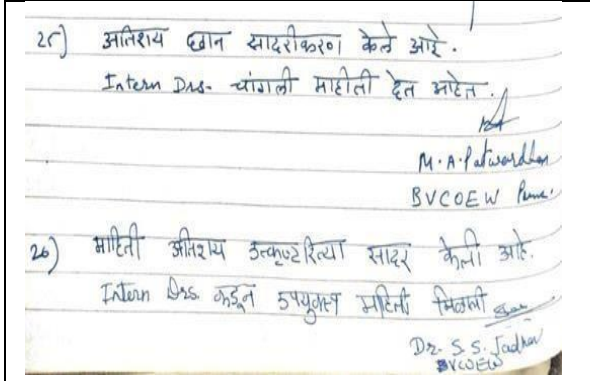 25) अतिशय छान सादरीकरण केले आहे.
Intern Drs. चांगली माहीती देत आहेत.
M. A. Patwardhan
BVCOEW Pune.
26) माहिती अतिशय उत्कृष्टरित्या सादर केली आहे.
Intern Drs. कडून उपयुक्त माहिती मिळाली
Dr. S. S. Jadhav
BVCOEW